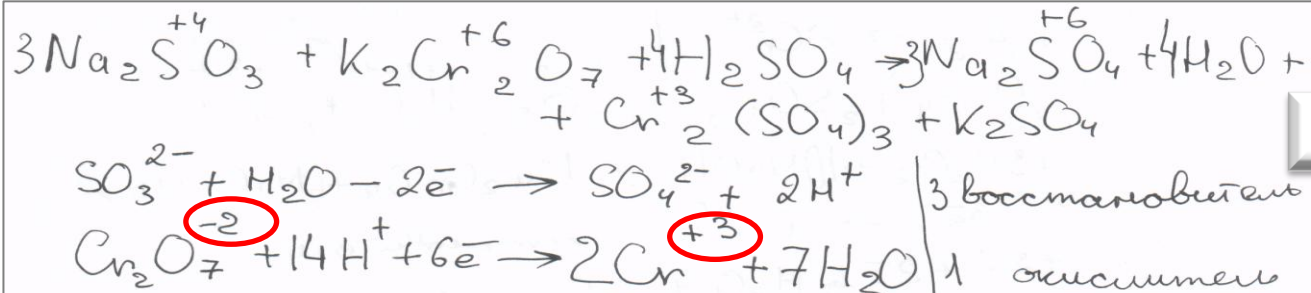 3Na₂S⁺⁴O₃ + K₂Cr⁺⁶₂O₇ + 4H₂SO₄ → 3Na₂S⁺⁶O₄ + 4H₂O +
+ Cr⁺³₂(SO₄)₃ + K₂SO₄
SO₃²⁻ + H₂O – 2ē → SO₄²⁻ + 2H⁺ | 3 восстановитель
Cr₂O₇⁻² + 14H⁺ + 6ē → 2Cr⁺³ + 7H₂O | 1 окислитель